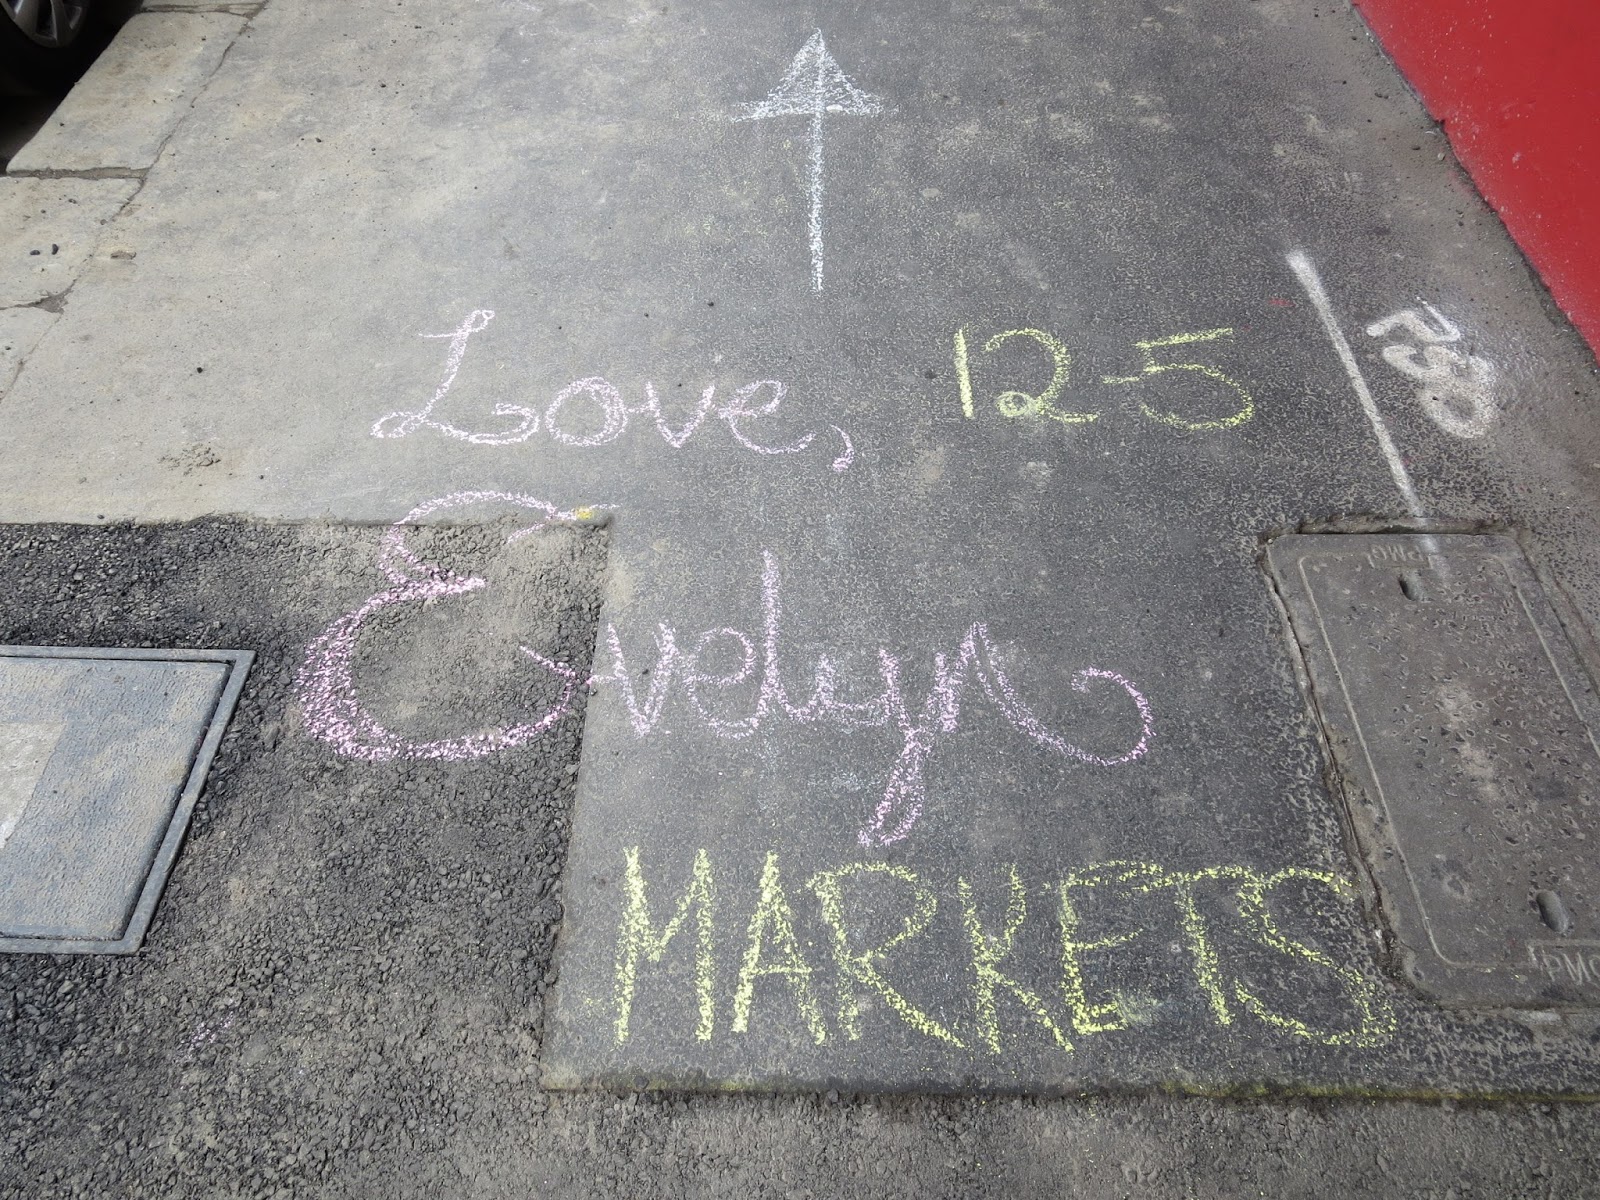 Love, 12-5
Evelyn
MARKETS
PMG